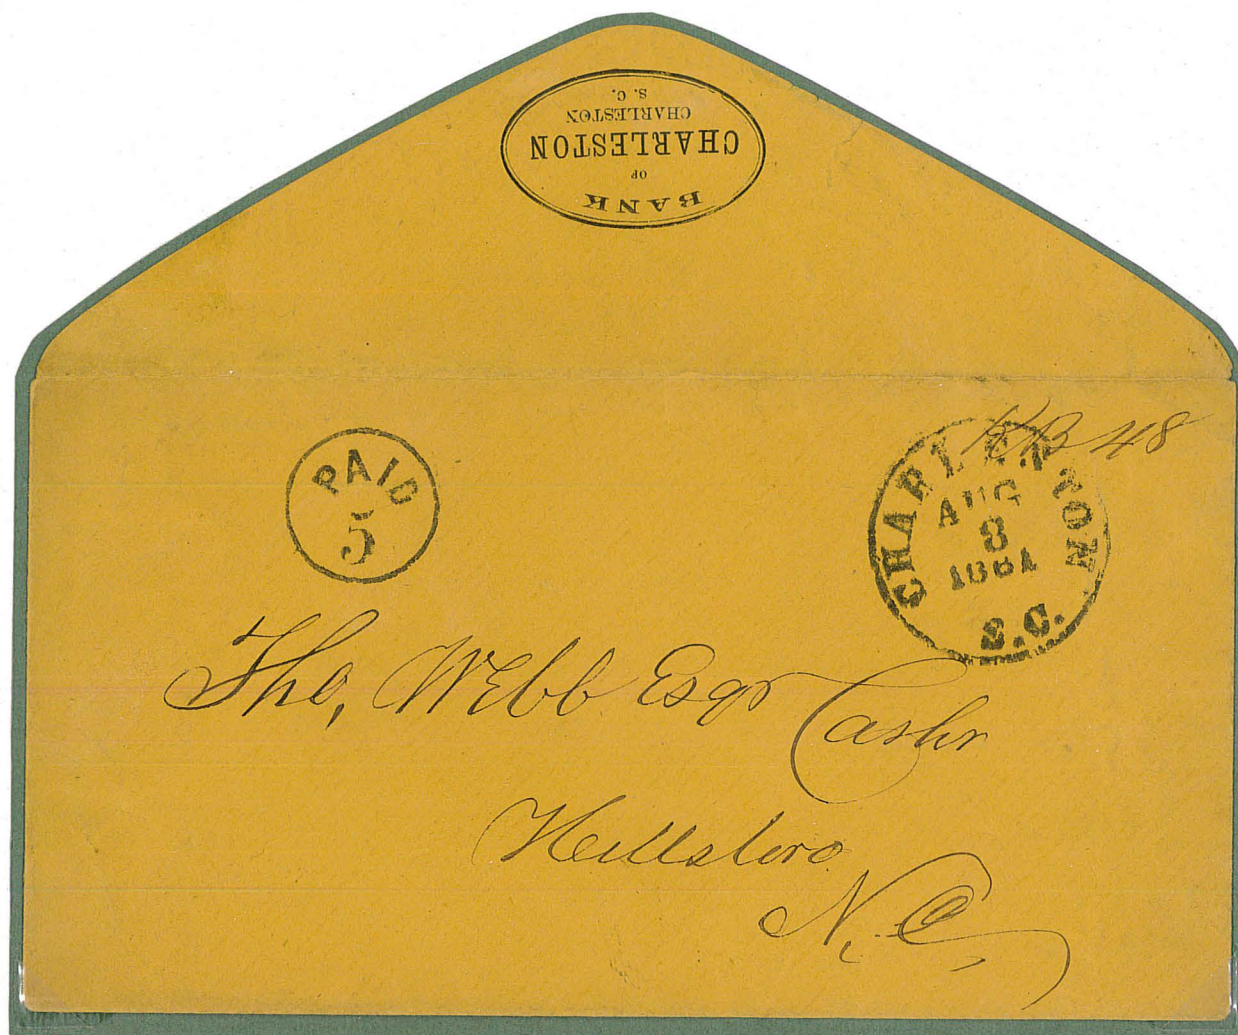 BANK
OF
CHARLESTON
CHARLESTON
S. C.
PAID
5
CHARLESTON
AUG
8
1861
S.C.
48
Tho, Webb Esqr Cashr
Hillsboro
N. C.